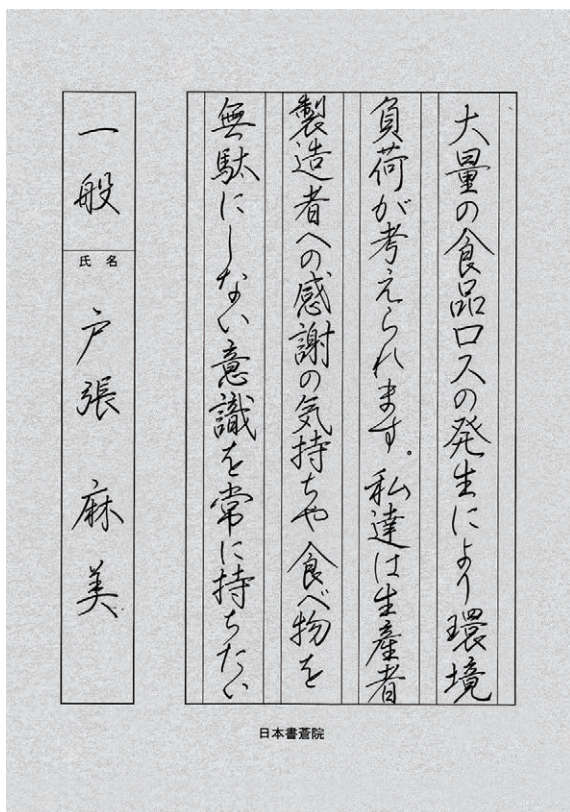 大量の食品ロスの発生により環境
負荷が考えられます。私達は生産者
製造者への感謝の気持ちや食べ物を
無駄にしない意識を常に持ちたい
一般
氏名
戸張 麻美
日本書蒼院